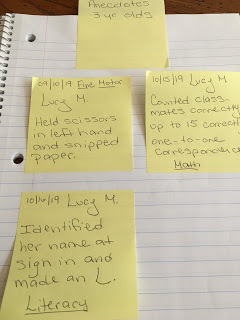 Anecdotes
3 yr olds
09/10/19 Fine Motor
Lucy M.
Held scissors
in left hand
and snipped
paper.
10/15/19 Lucy M
Counted class-
mates correctly
up to 15 correctly
one-to-one
correspondence
Math
10/16/19 Lucy M.
Identified
her name at
sign in and
made an L.
Literacy